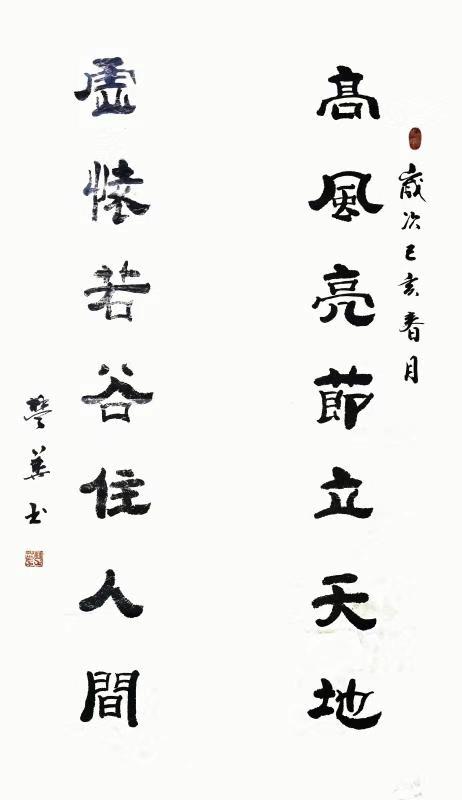 歲次己亥春月
高風亮節立天地
虛懷若谷住人間
華书